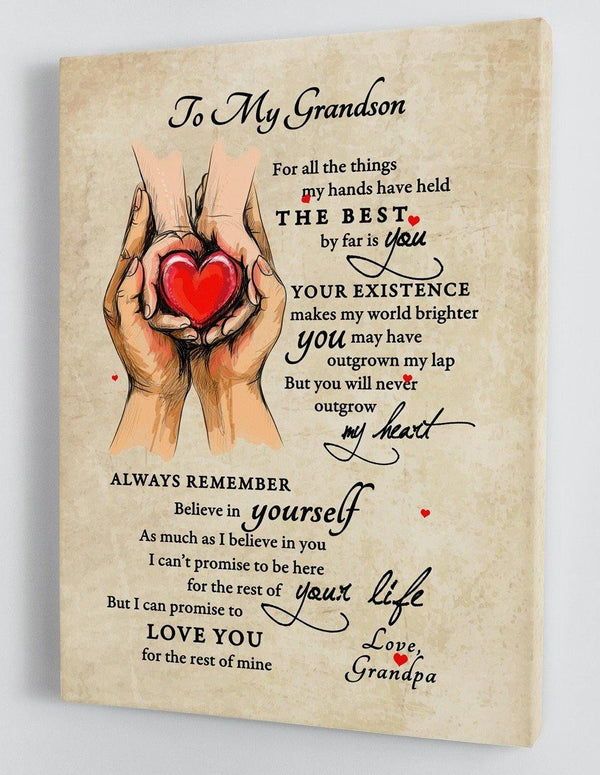 To My Grandson
For all the things
my hands have held
THE BEST
by far is you
YOUR EXISTENCE
makes my world brighter
you may have
outgrown my lap
But you will never
outgrow
my heart
ALWAYS REMEMBER
Believe in yourself
As much as I believe in you
I can't promise to be here
for the rest of your life
But I can promise to
LOVE YOU
for the rest of mine
Love,
Grandpa